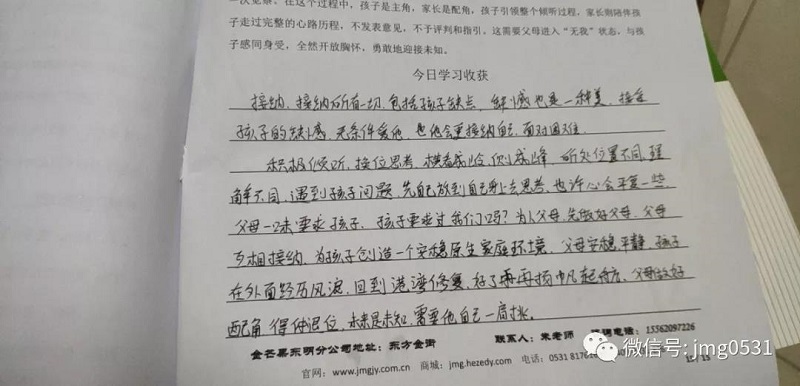 次觉察。在这个过程中，孩子是主角，家长是配角，孩子引领整个倾听过程，家长则陪伴孩
子走过完整的心路历程，不发表意见，不予评判和指引。这需要父母进入“无我”状态，与孩
子感同身受，全然开放胸怀，勇敢地迎接未知。
今日学习收获
接纳，接纳所有一切，包括孩子缺点，缺憾也是一种美，接受
孩子的缺憾，无条件爱他，也他会更接纳自己，面对困难
积极倾听，换位思考，横看成岭侧成峰，所处位置不同，
角车不同，遇到孩子问题，先自己放到自己身上去思考，也许心会平复一些
父母一味要求孩子，孩子要求过我们吗？为人父母，先做好父母，父母
互相接纳，为孩子创造一个安稳原生家庭环境，父母安稳平静，孩子
在外面经历风浪，回到港湾修复，好了再扬帆起航，父母做好
配角，得体退位，未来是未知，需要他自己一肩挑。
金芒果东明分公司地址：东方金街 联系人：朱老师 咨询电话：15562097226
官网：www.jmgjy.com.cn 商城：jmg.hezedy.com 电话：0531 8176
微信号: jmg0531